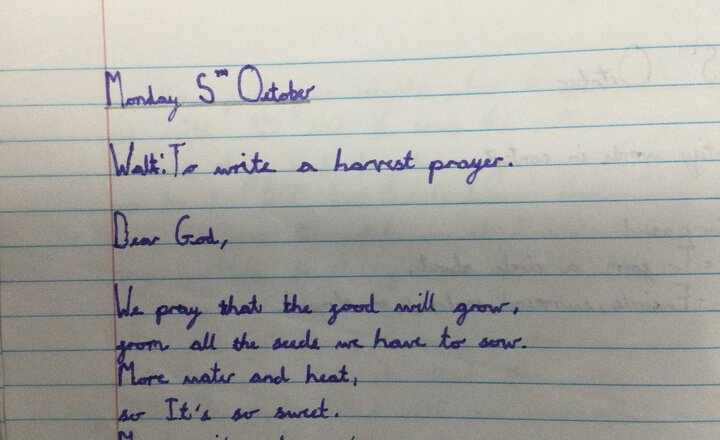 Monday 5th October
Walt: To write a harvest prayer.
Dear God,
We pray that the food will grow,
from all the seeds we have to sow.
More water and heat,
so It's so sweet.